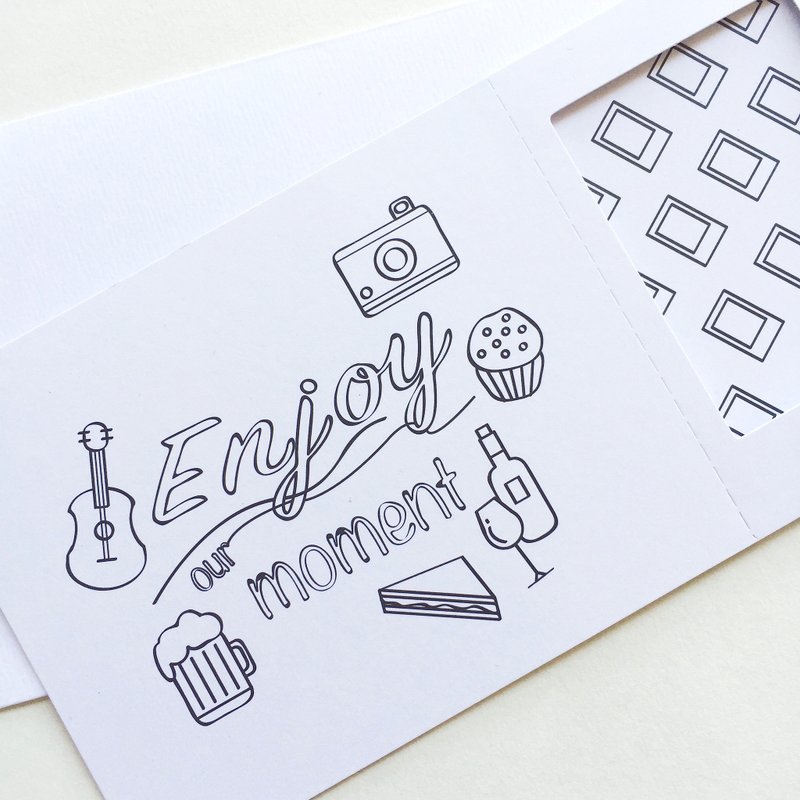 Enjoy
our moment